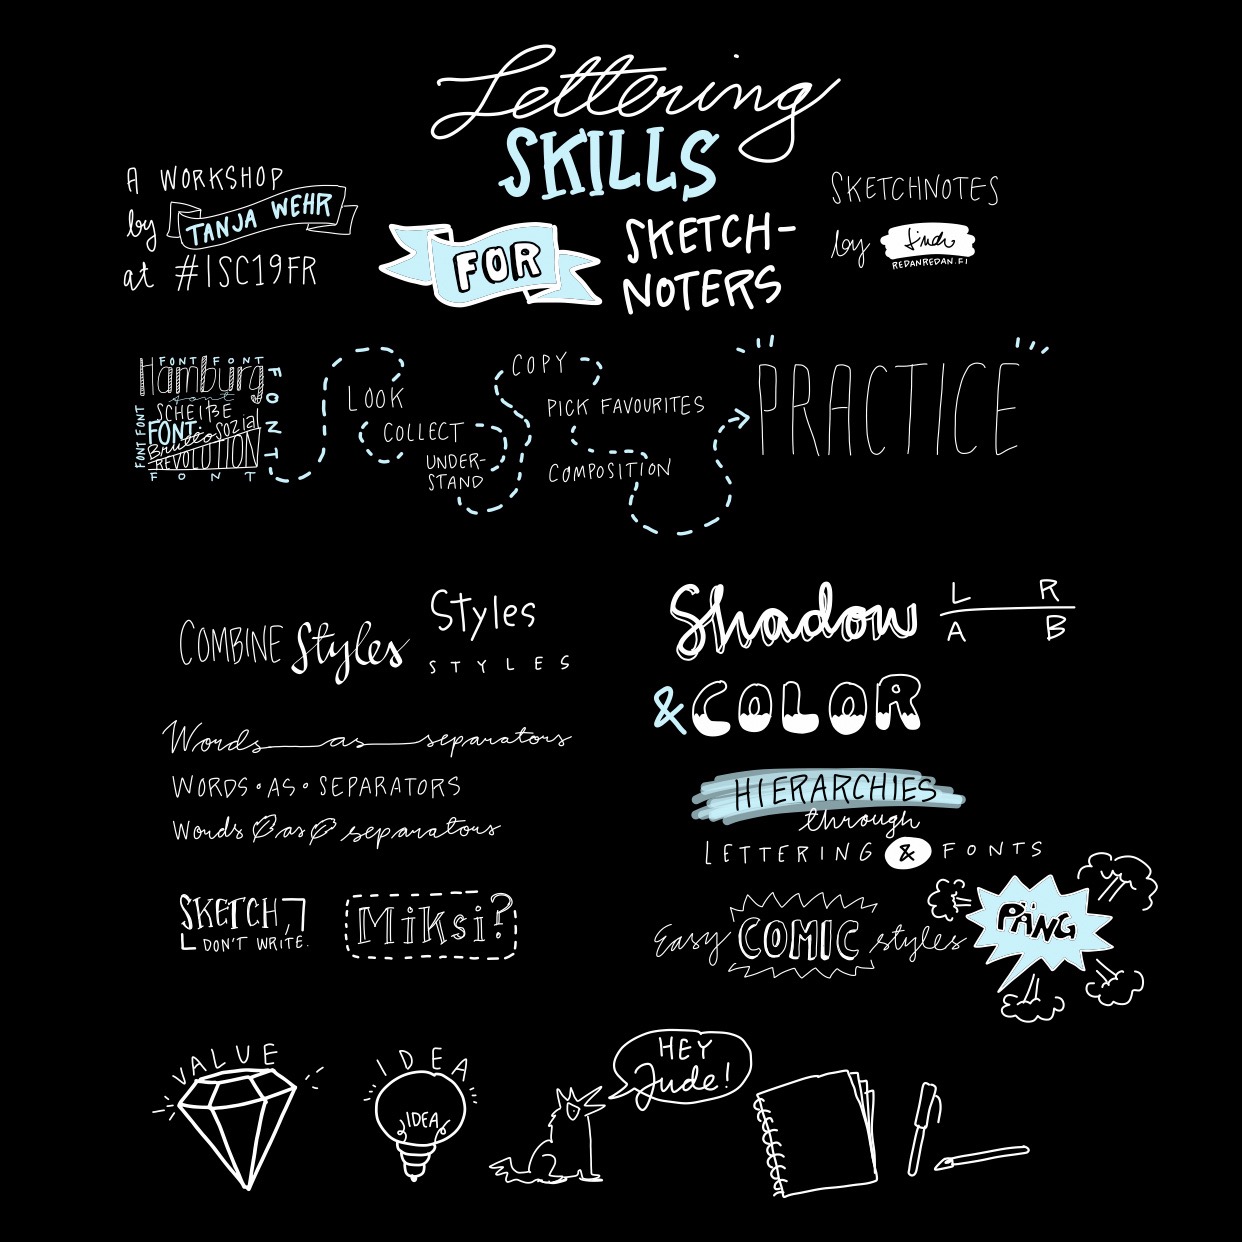 Lettering
SKILLS
FOR
SKETCH-
NOTERS
A WORKSHOP
by TANJA WEHR
at #ISC19FR
SKETCHNOTES
by
REDANREDAN.FI
FONT FONT
Hamburg
font
SCHEIßE
FONT
Sozial
REVOLUTION
FONT
FONT
FONT FONT
LOOK
COLLECT
UNDER-
STAND
COPY
PICK FAVOURITES
COMPOSITION
PRACTICE
COMBINE Styles
Styles
STYLES
Words as separators
WORDS • AS • SEPARATORS
Words as separators
SKETCH,
DON'T WRITE.
Miksi?
Shadow
L R
A B
& COLOR
HIERARCHIES
through
LETTERING & FONTS
Easy COMIC styles
PÄNG
VALUE
IDEA
IDEA
HEY
Jude!